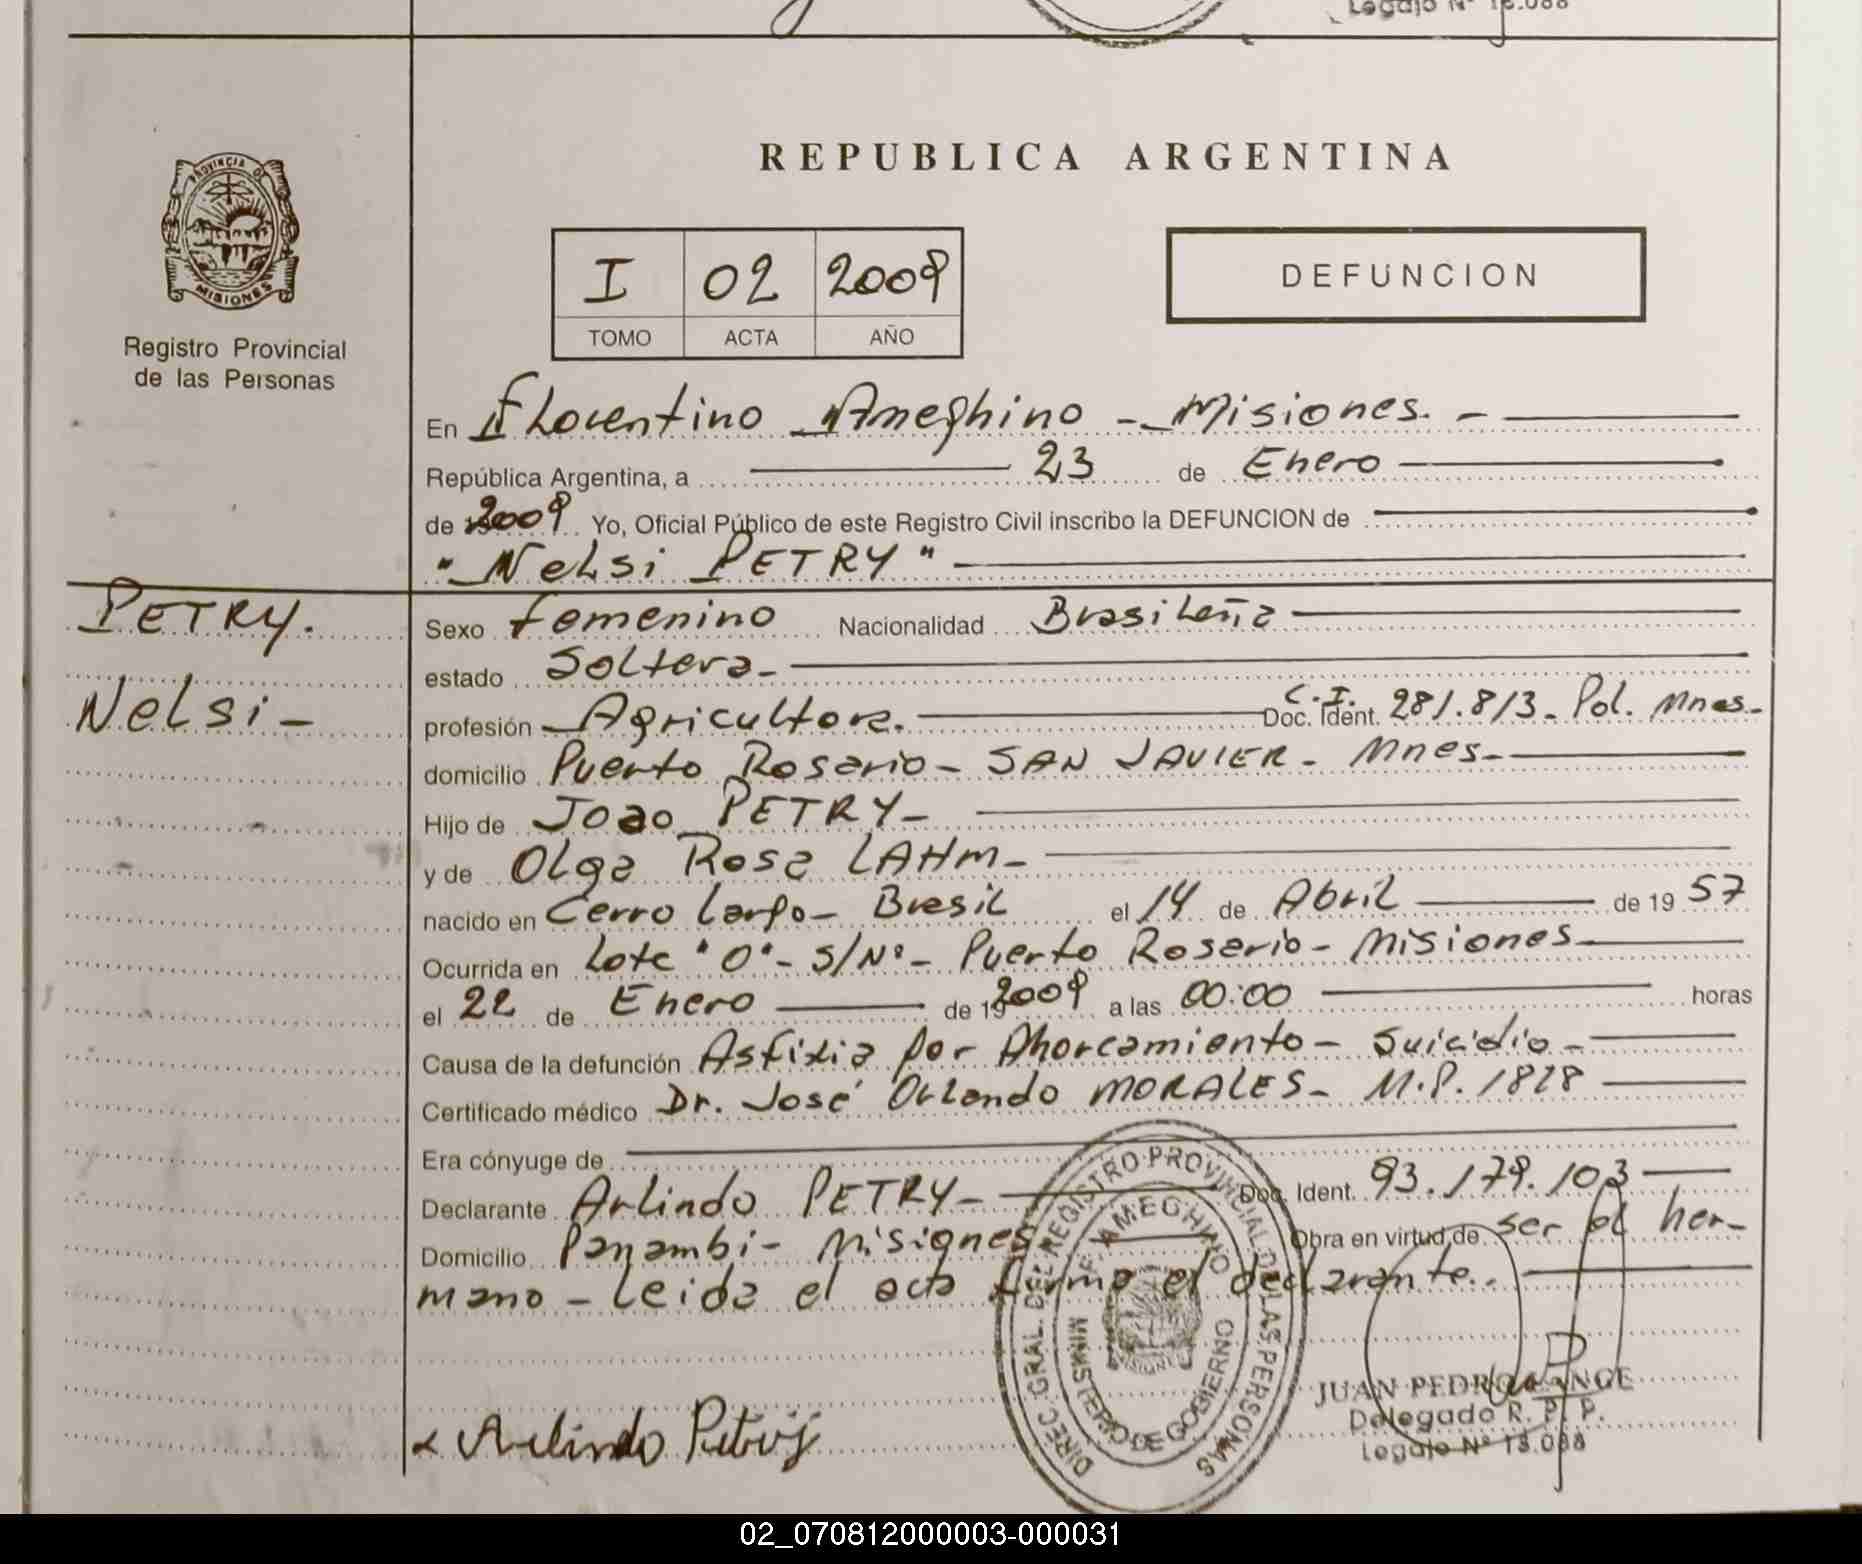 Legajo Nº 18.088
PROVINCIA DE
MISIONES
Registro Provincial
de las Personas
REPUBLICA ARGENTINA
I 02 2009
TOMO ACTA AÑO
DEFUNCION
En Florentino Ameghino - Misiones. -
República Argentina, a 23 de Enero
de 2009 Yo, Oficial Público de este Registro Civil inscribo la DEFUNCION de
"Nelsi PETRY"
PETRY.
Nelsi -
Sexo Femenino Nacionalidad Brasileña
estado Soltera -
profesión Agricultora. Doc. Ident. C.I. 281.813 - Pol. Mnes -
domicilio Puerto Rosario - SAN JAVIER - Mnes -
Hijo de Joao PETRY -
y de Olga Rosa LAHM -
nacido en Cerro Largo - Brasil el 14 de Abril de 19 57
Ocurrida en Lote "O" - S/Nº - Puerto Rosario - Misiones -
el 22 de Enero de 19 2009 a las 00:00 horas
Causa de la defunción Asfixia por Ahorcamiento - Suicidio -
Certificado médico Dr. José Orlando MORALES - M.P. 1828
Era cónyuge de
Declarante Arlindo PETRY - Doc. Ident. 93.179.103
Domicilio Panambi - Misiones Obra en virtud de ser el her-
mano - Leida el acta firma el declarante.
DIREC. GRAL. DEL REGISTRO PROVINCIAL DE LAS PERSONAS
F. AMEGHINO
MINISTERIO DE GOBIERNO
Arlindo Petry
JUAN PEDRO LANGE
Delegado R. P. P.
Legajo Nº 18.088
02_070812000003-000031